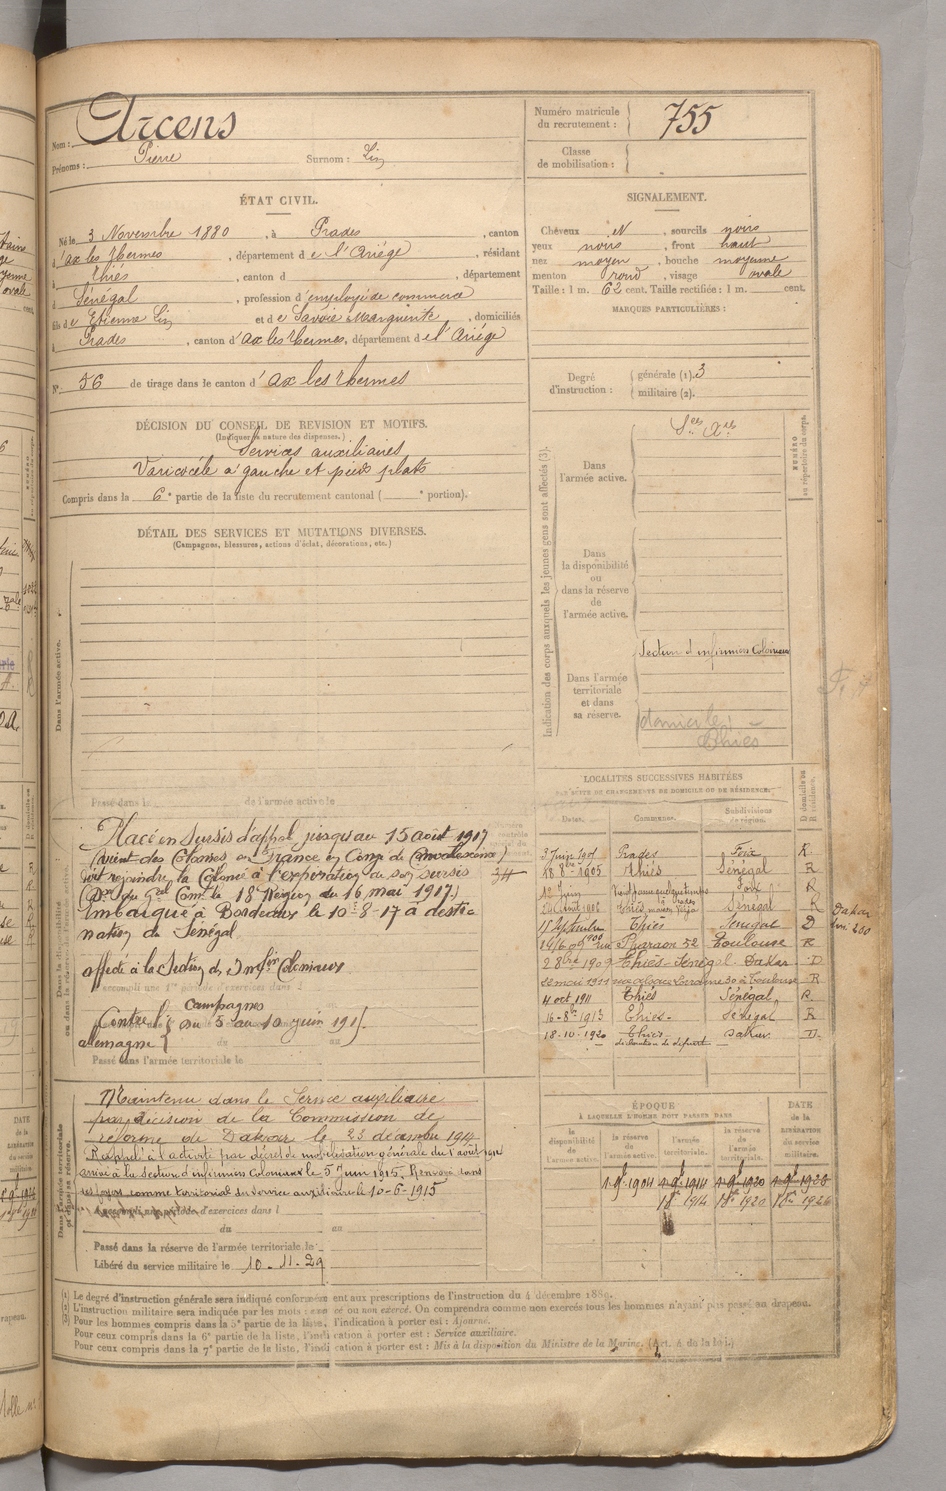 Nom : Arcens
Prénoms : Pierre Surnom : Lin
Numéro matricule du recrutement : 755
Classe de mobilisation :
ÉTAT CIVIL.
Né le 3 Novembre 1880, à Prades, canton
d'ax les thermes, département de l'Ariége, résidant
à thiés, canton d , département
d Sénégal, profession d'employé de commerce
fils de Etienne Lin et de Savoie Marguerite, domiciliés
à Prades, canton d'ax les thermes, département de l'Ariége
N° 56 de tirage dans le canton d'ax les thermes
SIGNALEMENT.
Cheveux N, sourcils noirs
yeux noirs, front haut
nez moyen, bouche moyenne
menton rond, visage ovale
Taille : 1 m. 62 cent. Taille rectifiée : 1 m. cent.
MARQUES PARTICULIÈRES :
Degré d'instruction : générale (1). 3
militaire (2).
DÉCISION DU CONSEIL DE REVISION ET MOTIFS.
(Indiquer la nature des dispenses.)
Services auxiliaires
Varicocéle a gauche et pieds plats
Compris dans la 6e partie de la liste du recrutement cantonal ( e portion).
DÉTAIL DES SERVICES ET MUTATIONS DIVERSES.
(Campagnes, blessures, actions d'éclat, décorations, etc.)
Dans l'armée active.
Passé dans l de l'armée active le
Placé en sursis d'appel jusqu'au 15 août 1917
(vient des Colonies en France en Congé de Convalescence)
doit rejoindre la Colonie à l'expiration de son sursis
(Don du Gal Comt le 18e Région du 16 mai 1917)
Embarqué à Bordeaux le 10-8-17 à desti-
nation du Sénégal
affecté à la Section d'Infirs Coloniaux
campagnes
Contre l'allemagne { du 5 au 10 juin 1915
Passé dans l'armée territoriale le
Maintenu dans le Service auxiliaire
par décision de la Commission de
réforme de Dakar le 23 décembre 1914
Rappelé à l'activité par décret de mobilisation générale du 1 août 1914
arrivé à la section d'infirmiers Coloniaux le 5 Juin 1915. Renvoyé dans
ses foyers comme territorial du service auxiliaire le 10-6-1915
du au
Passé dans la réserve de l'armée territoriale le
Libéré du service militaire le 10-11-29
Indication des corps auxquels les jeunes gens sont affectés (3).
NUMÉRO au répertoire du corps.
Dans l'armée active.
Ses Ares
Dans la disponibilité ou dans la réserve de l'armée active.
Dans l'armée territoriale et dans sa réserve.
Section d'infirmiers Coloniaux
domicile :
Thiès
LOCALITÉS SUCCESSIVES HABITÉES
PAR SUITE DE CHANGEMENTS DE DOMICILE OU DE RÉSIDENCE.
Dates. Communes. Subdivisions de région. D domicile ou R résidence.
3 Juin 1901 Prades Foix R
18 8bre 1905 Thiés Sénégal R
Thiés Sénégal R
15 Septembre Thiés Sénégal D
19/6 09 rue Pharaon 52 Toulouse R
2 8bre 1909 Thiés-Sénégal Dakar D
22 mai 1911 rue alsace Lorraine 30 à Toulouse R
4 oct. 1911 Thiés Sénégal R
16-8bre 1913 Thiès- Sénégal R
18-10-1920 Thiès Dakar D.
ÉPOQUE
À LAQUELLE L'HOMME DOIT PASSER DANS
DATE de la LIBÉRATION du service militaire.
la disponibilité de l'armée active. la réserve de l'armée active. l'armée territoriale. la réserve de l'armée territoriale.
1-9bre 1904 1-9bre 1914 1-9bre 1920 1-9bre 1926
1 8bre 1914 1 8bre 1920 1 8bre 1926
(1) Le degré d'instruction générale sera indiqué conformément aux prescriptions de l'instruction du 4 décembre 1889.
(2) L'instruction militaire sera indiquée par les mots : exercé ou non exercé. On comprendra comme non exercés tous les hommes n'ayant pas passé au drapeau.
(3) Pour les hommes compris dans la 5e partie de la liste, l'indication à porter est : Ajourné.
Pour ceux compris dans la 6e partie de la liste, l'indication à porter est : Service auxiliaire.
Pour ceux compris dans la 7e partie de la liste, l'indication à porter est : Mis à la disposition du Ministre de la Marine. (Art. 4 de la loi.)